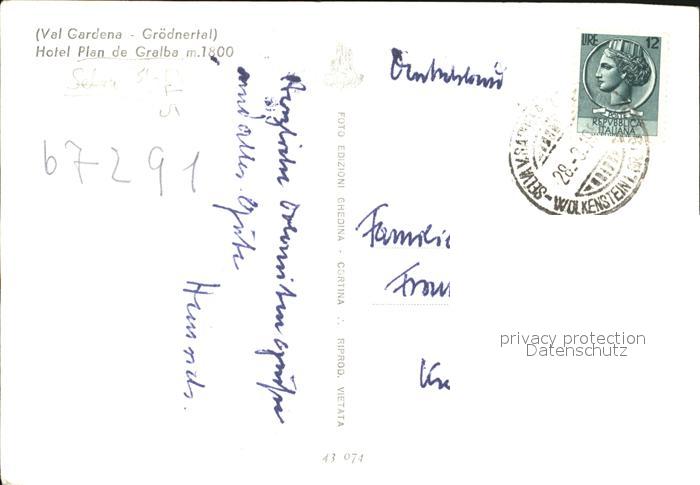 (Val Gardena - Grödnertal)
Hotel Plan de Gralba m.1800
Selva
67291
Herzliche Dolomitengrüße
und alles Gute
Heinrich.
FOTO EDIZIONI GHEDINA - CORTINA ∴ RIPROD. VIETATA
43 074
Deutschland
LIRE 12
POSTE
REPVBBLICA
ITALIANA
SELVA
28-
-WOLKENSTEIN
Familie
privacy protection
Datenschutz